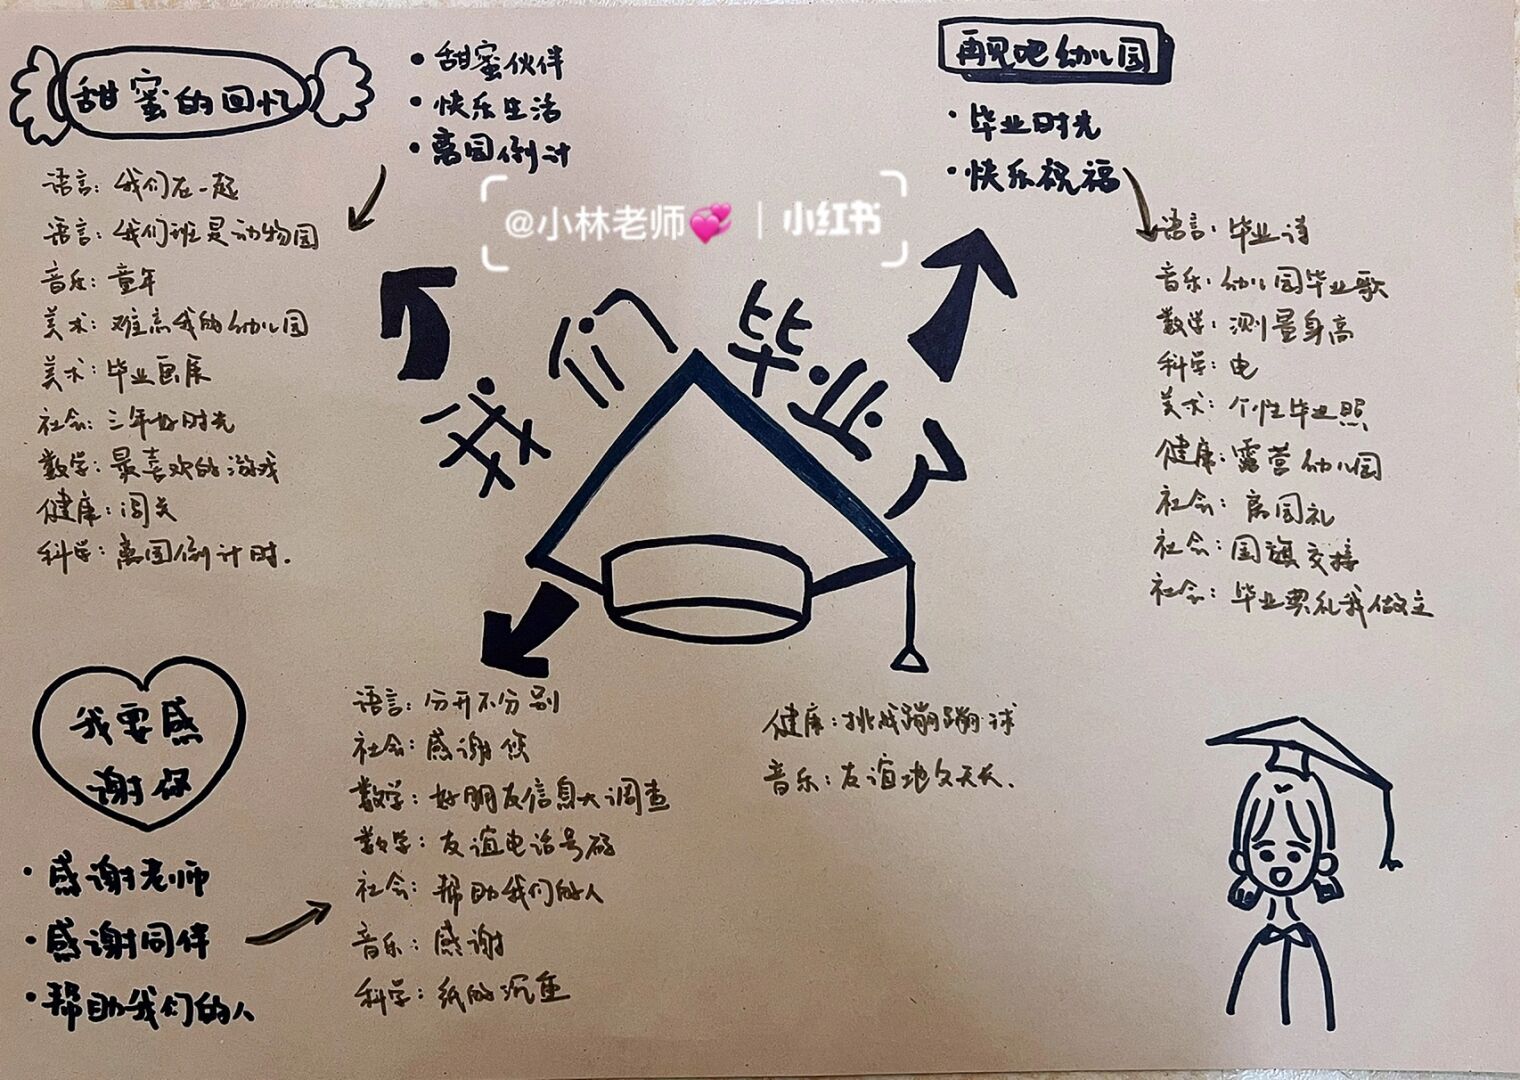 甜蜜的回忆
• 甜蜜伙伴
• 快乐生活
• 离园倒计
语言: 我们在一起
语言: 我们班是动物园
音乐: 童年
美术: 难忘我的幼儿园
美术: 毕业画展
社会: 三年好时光
数学: 最喜欢的游戏
健康: 闯关
科学: 离园倒计时.
@小林老师💞 | 小红书
我们毕业了
再见吧幼儿园
• 毕业时光
• 快乐祝福
语言: 毕业诗
音乐: 幼儿园毕业歌
数学: 测量身高
科学: 电
美术: 个性毕业照
健康: 露营幼儿园
社会: 离园礼
社会: 国旗交接
社会: 毕业典礼我做主
我要感
谢你
• 感谢老师
• 感谢同伴
• 帮助我们的人
语言: 分开不分别
社会: 感谢您
数学: 好朋友信息大调查
数学: 友谊电话号码
社会: 帮助我们的人
音乐: 感谢
科学: 纸的沉重
健康: 挑战蹦蹦球
音乐: 友谊地久天长.